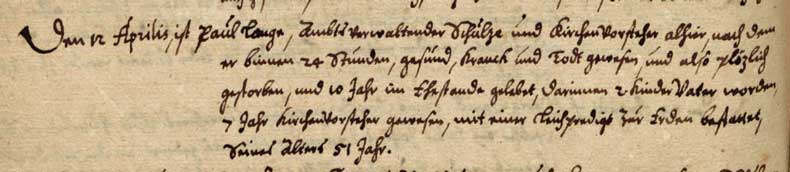 Den 12 Aprilis, ist Paul Lange, Ambtsverwaltender Schultze und Kirchenvorsteher alhier, nach dem
er binnen 24 Stunden, gesund, kranck und Todt gewesen, und also plözlich
gestorben, und 10 Jahr im Ehestande gelebet, darinnen 2 Kinder Vater worden,
7 Jahr Kirchenvorsteher gewesen, mit einer Leichpredigt zur Erden bestattet,
Seines Alters 51 Jahr.